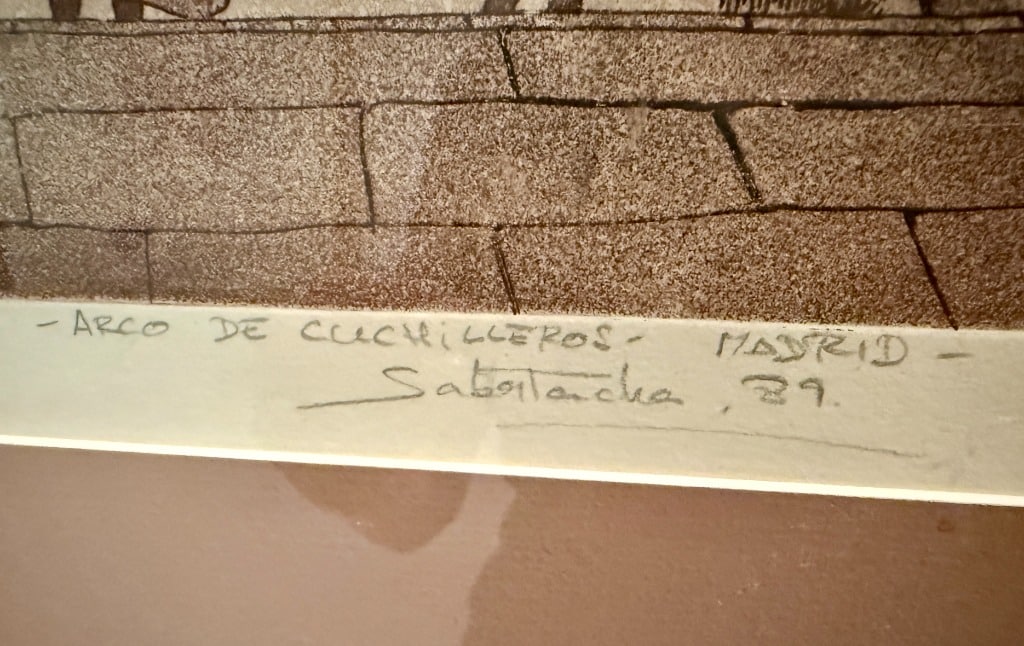 - ARCO DE CUCHILLEROS - MADRID -
, 89.